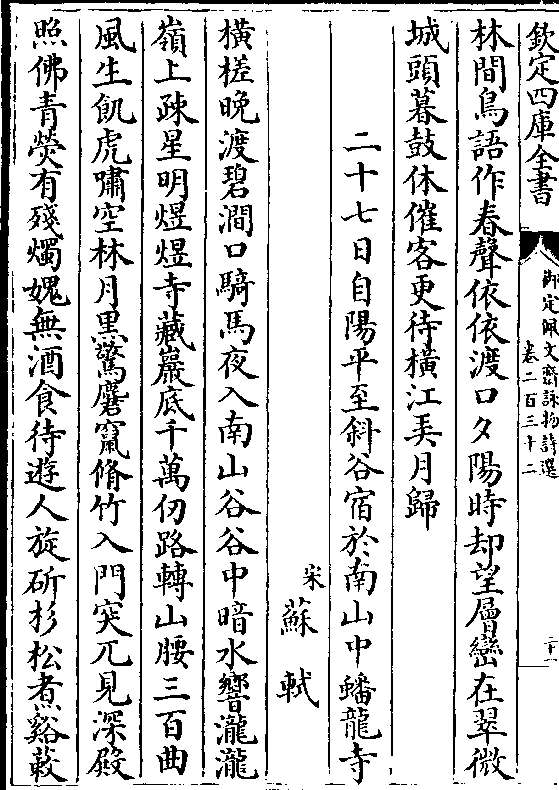 欽定四庫全書
御定佩文齋詠物詩選
卷二百三十二
二十一
林間鳥語作春聲依依渡口夕陽時却望層巒在翠微
城頭暮鼓休催客更待橫江弄月歸
二十七日自陽平至斜谷宿於南山中蟠龍寺
宋蘇軾
橫槎晚渡碧澗口騎馬夜入南山谷谷中暗水響瀧瀧
嶺上疎星明煜煜寺藏巖底千萬仞路轉山腰三百曲
風生飢虎嘯空林月黑驚麏竄脩竹入門突兀見深殿
照佛青熒有殘燭媿無酒食待遊人旋斫杉松煮谿蔌